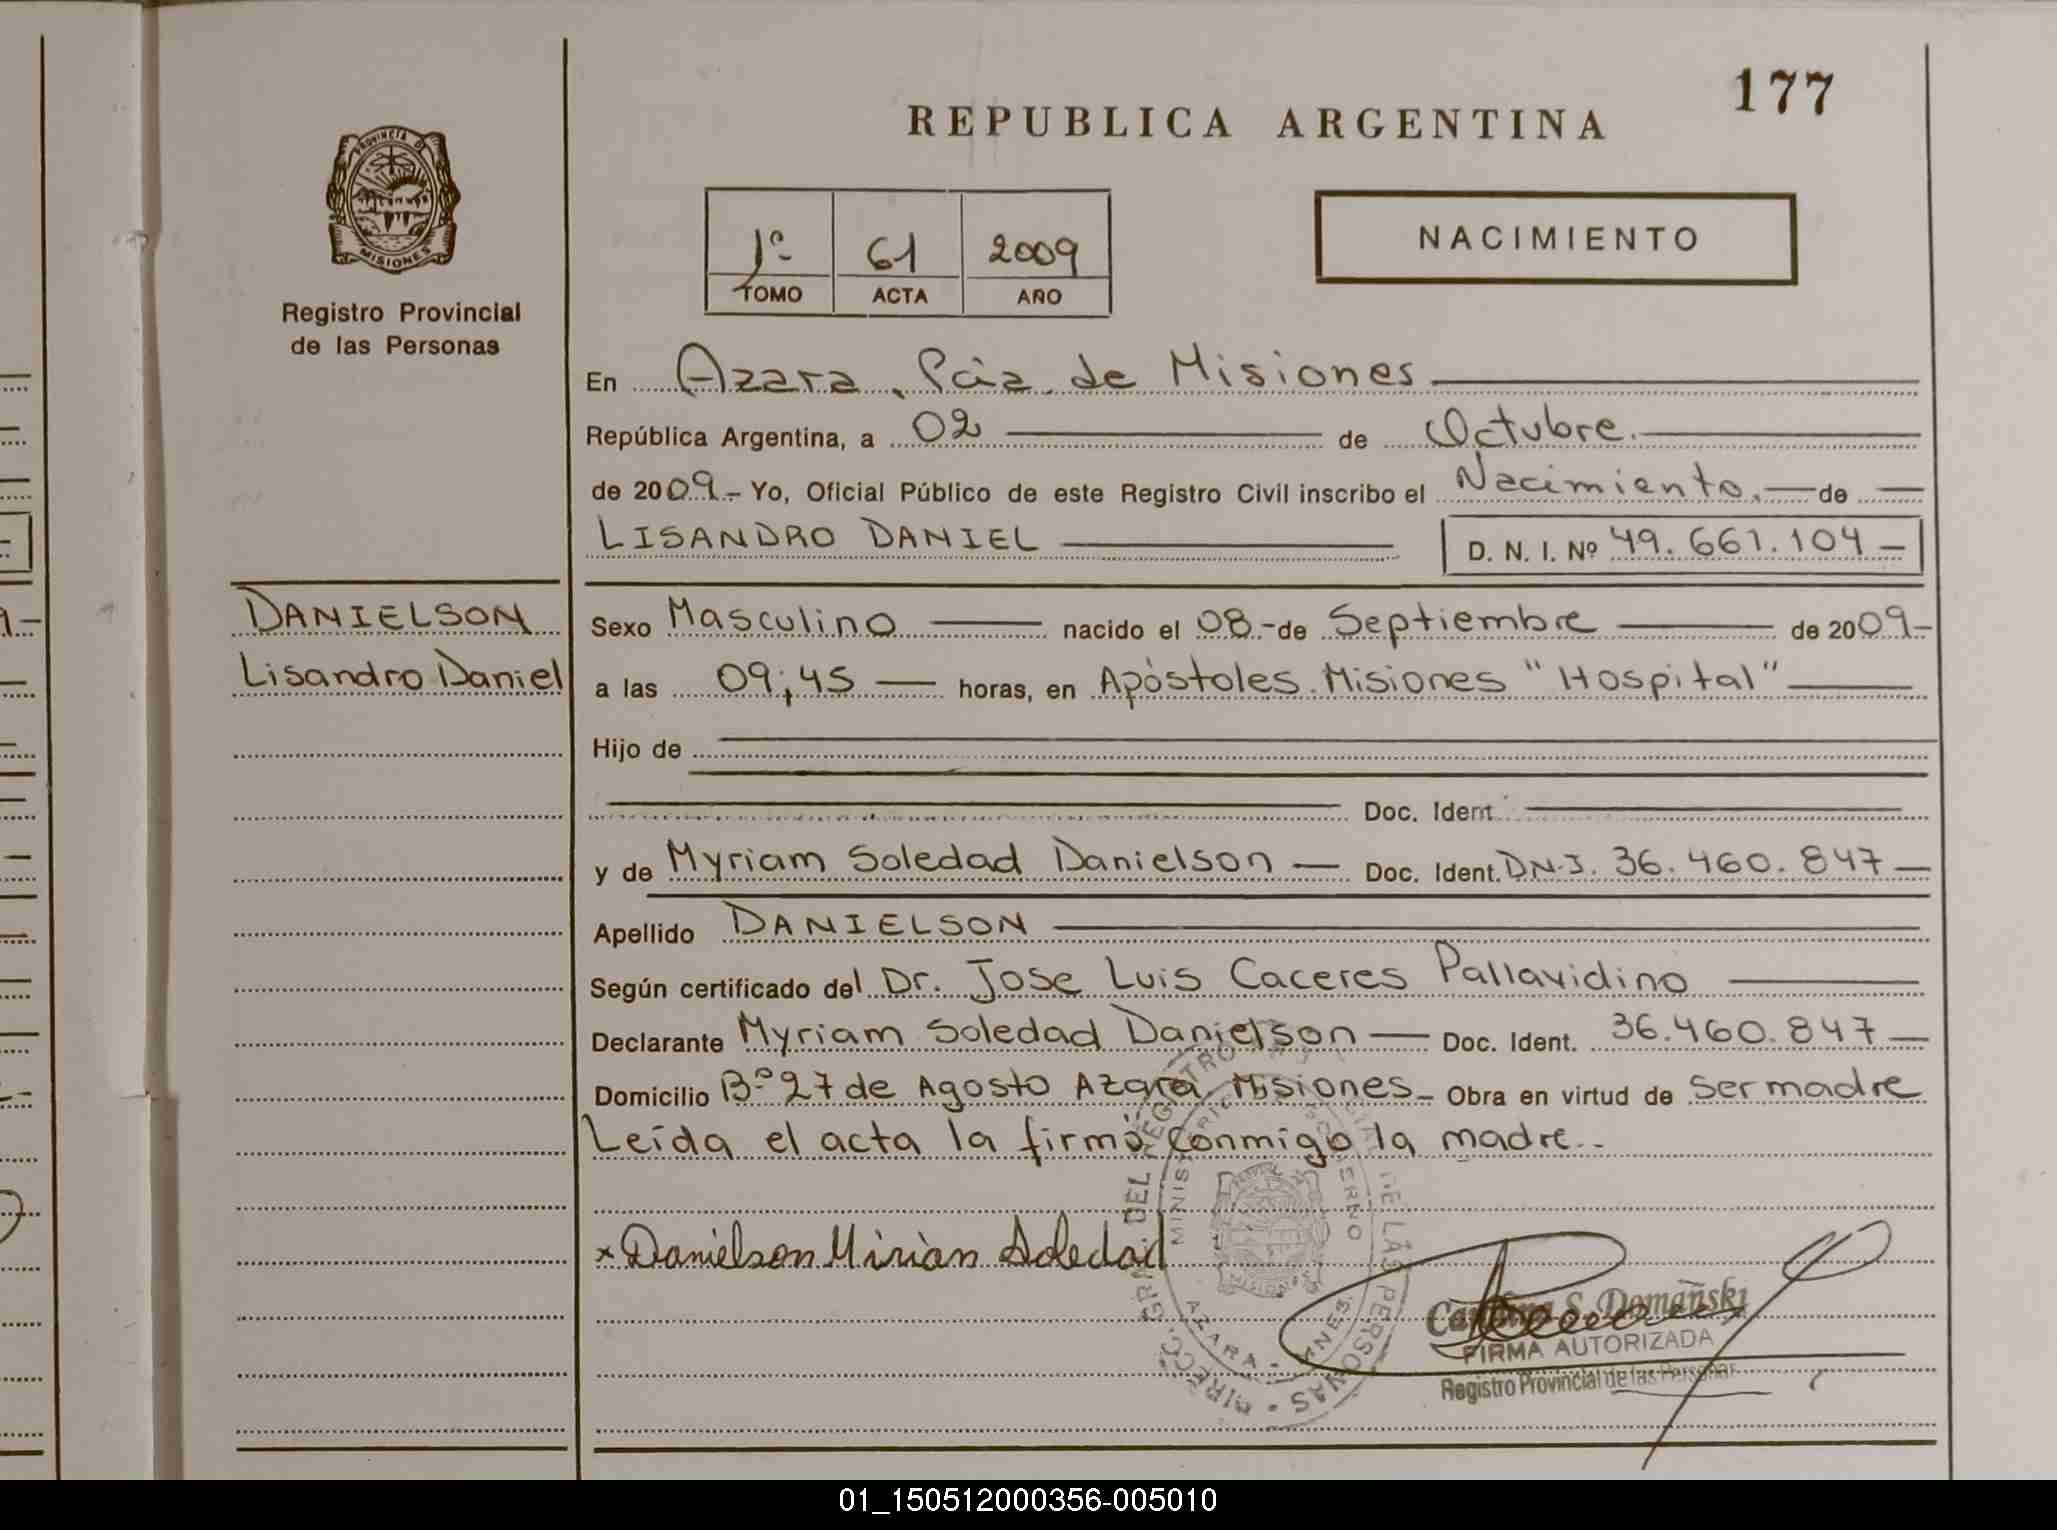 177
REPUBLICA ARGENTINA
PROVINCIA DE
MISIONES
Registro Provincial
de las Personas
1º 61 2009
TOMO ACTA AÑO
NACIMIENTO
En Azara, Pcia. de Misiones
República Argentina, a 02 de Octubre.
de 2009.- Yo, Oficial Público de este Registro Civil inscribo el Nacimiento. de
LISANDRO DANIEL D. N. I. Nº 49.661.104
DANIELSON
Lisandro Daniel
Sexo Masculino nacido el 08.- de Septiembre de 2009-
a las 09,45 horas, en Apóstoles. Misiones "Hospital"
Hijo de
Doc. Ident.
y de Myriam Soledad Danielson Doc. Ident. DN.I. 36.460.847
Apellido DANIELSON
Según certificado del Dr. Jose Luis Caceres Pallavidino
Declarante Myriam Soledad Danielson Doc. Ident. 36.460.847
Domicilio Bº 27 de Agosto Azara Misiones Obra en virtud de Ser madre
Leída el acta la firmó conmigo la madre.-
x Danielson Mirian Soledad
DEL REGISTRO DE LAS PERSONAS
AZARA - MNES.
S. Domañski
FIRMA AUTORIZADA
Registro Provincial de las Personas
01_150512000356-005010